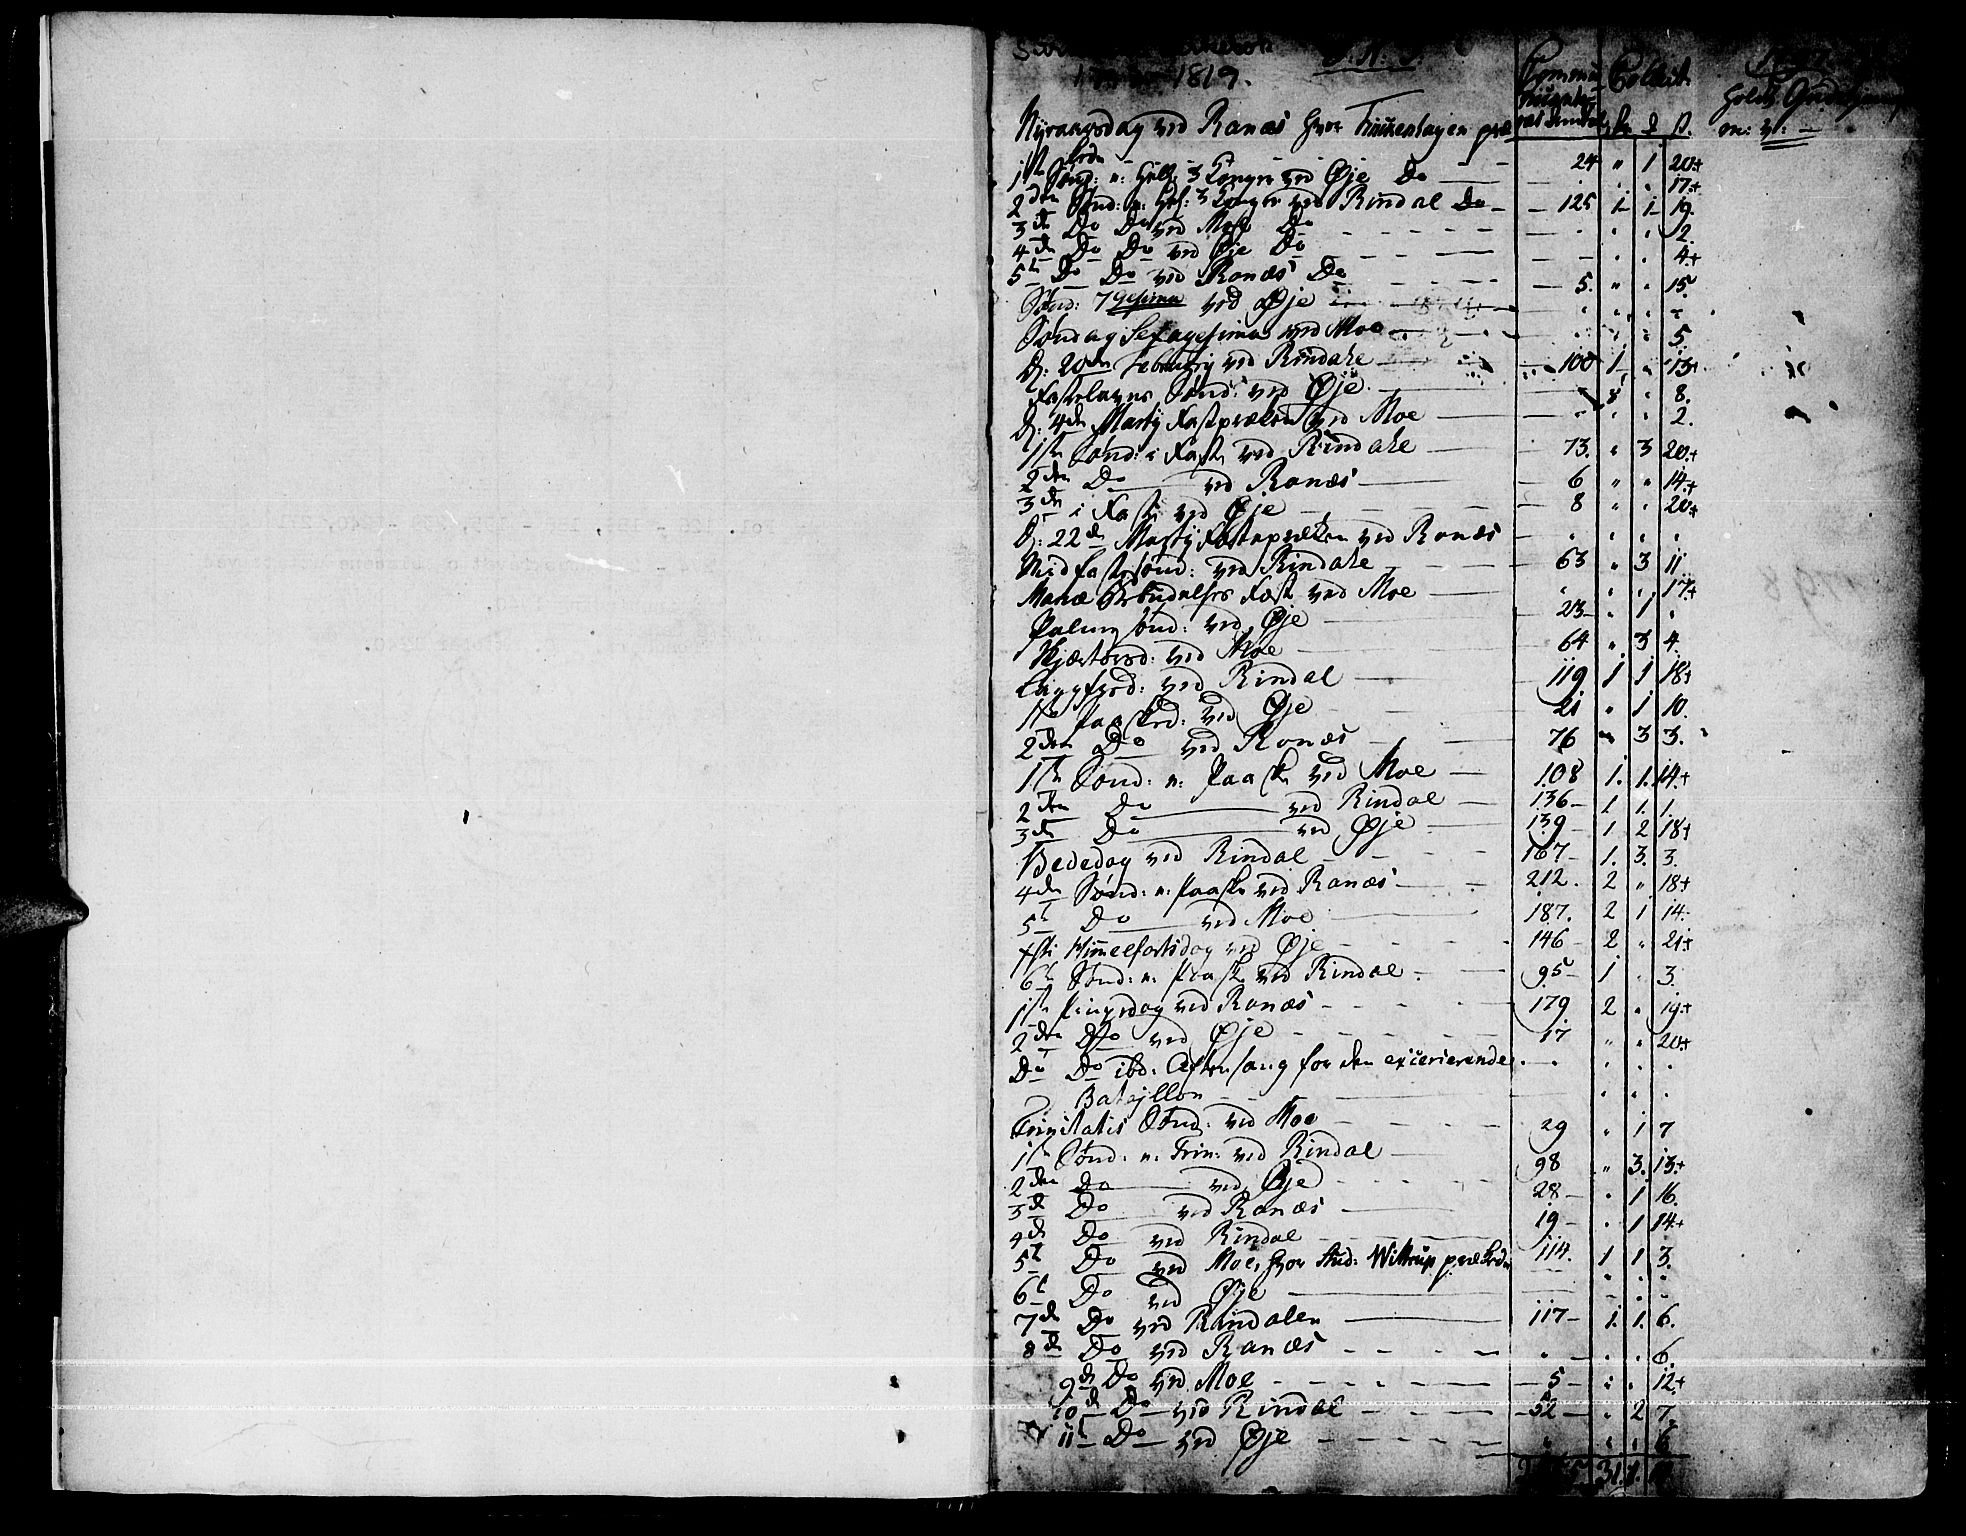 1819.
J. N. J.
Commu-
Collect.
Nyeaarsdag ved Ranæs hvor Finckenhagen
1ste Sønd: n: Hell: 3 Konger ved Øje Do — 24 " 1 20+
17+
2den Sønd: n: Hel: 3 Konger ved Rindal Do — 125 1 1 19.
3de Do Do ved Moe Do — 2.
4de Do Do ved Øje Do — 4+
5te Do Do ved Ranæs Do — 5. " 15.
Sønd: 7gesima ved Øje
Søndag Sexagesima ved Moe — 5.
D: 20de February ved Rindale — 100 1 " 13+
Fastelavns Sønd: ved Øje — 8.
D: 4de Martÿ Fastepræken ved Moe — 2.
1ste Sønd: i Faste ved Rindale — 73. " 3 20+
2den Do ved Ranæs — 6 " " 14+
3de i Faste ved Øje — 8 " " 20+
D: 22de Martÿ Fasteprækен ved Ranæs —
Midfastesønd: ved Rindale — 63 " 3 11
Mariæ Bebudelses Fest ved Moe — 17+
Palmesønd: ved Øje — 23 " 1 "
Skjærtorsd: ved Moe — 64 " 3 4.
Langfred: ved Rindal — 119 1 1 18+
1ste Paasked: ved Øje — 21 " 1 10.
2den Do ved Ranæs — 76 " 3 3.
1ste Sønd: n: Paaske ved Moe — 108 1. 1. 14+
2den Do ved Rindal — 136 1 1. 1.
3de Do ved Øje — 139 1 2 18+
Bededag ved Rindal — 167 1. 3. 3.
4de Sønd: n: Paaske ved Ranæs — 212. 2 " 18+
5te Do ved Moe — 187. 2 1 14
Chr: Himmelfartsdag ved Øje — 146 2 " 21+
6te Sønd: n: Paaske ved Rindal — 95 1 " 3.
1ste Pingsdag ved Ranæs — 179 2 " 19+
2den Do ved Øje — 17 " " 20+
Do Do ibd: Aftensang for den exicerierende
Batejllon
Trinitatis Sønd: ved Moe — 29 " 1 7
1ste Sønd: n: Trin: ved Rindal — 98 " 3. 13+
2den Do ved Øje — 28 " 1 16.
3de Do ved Ranæs — 19 " 1 14+
4de Do ved Rindal — 114. 1 1 3.
5te Do ved Moe, hvor Stud: Wittrup præked
6te Do ved Øje
7de Do ved Rindalen — 117 1. 1. 6.
8de Do ved Ranæs — 6.
9de Do ved Moe — 5 " " 12+
10de Do ved Rindal — 52 " 2 7.
11te Do ved Øje — 6